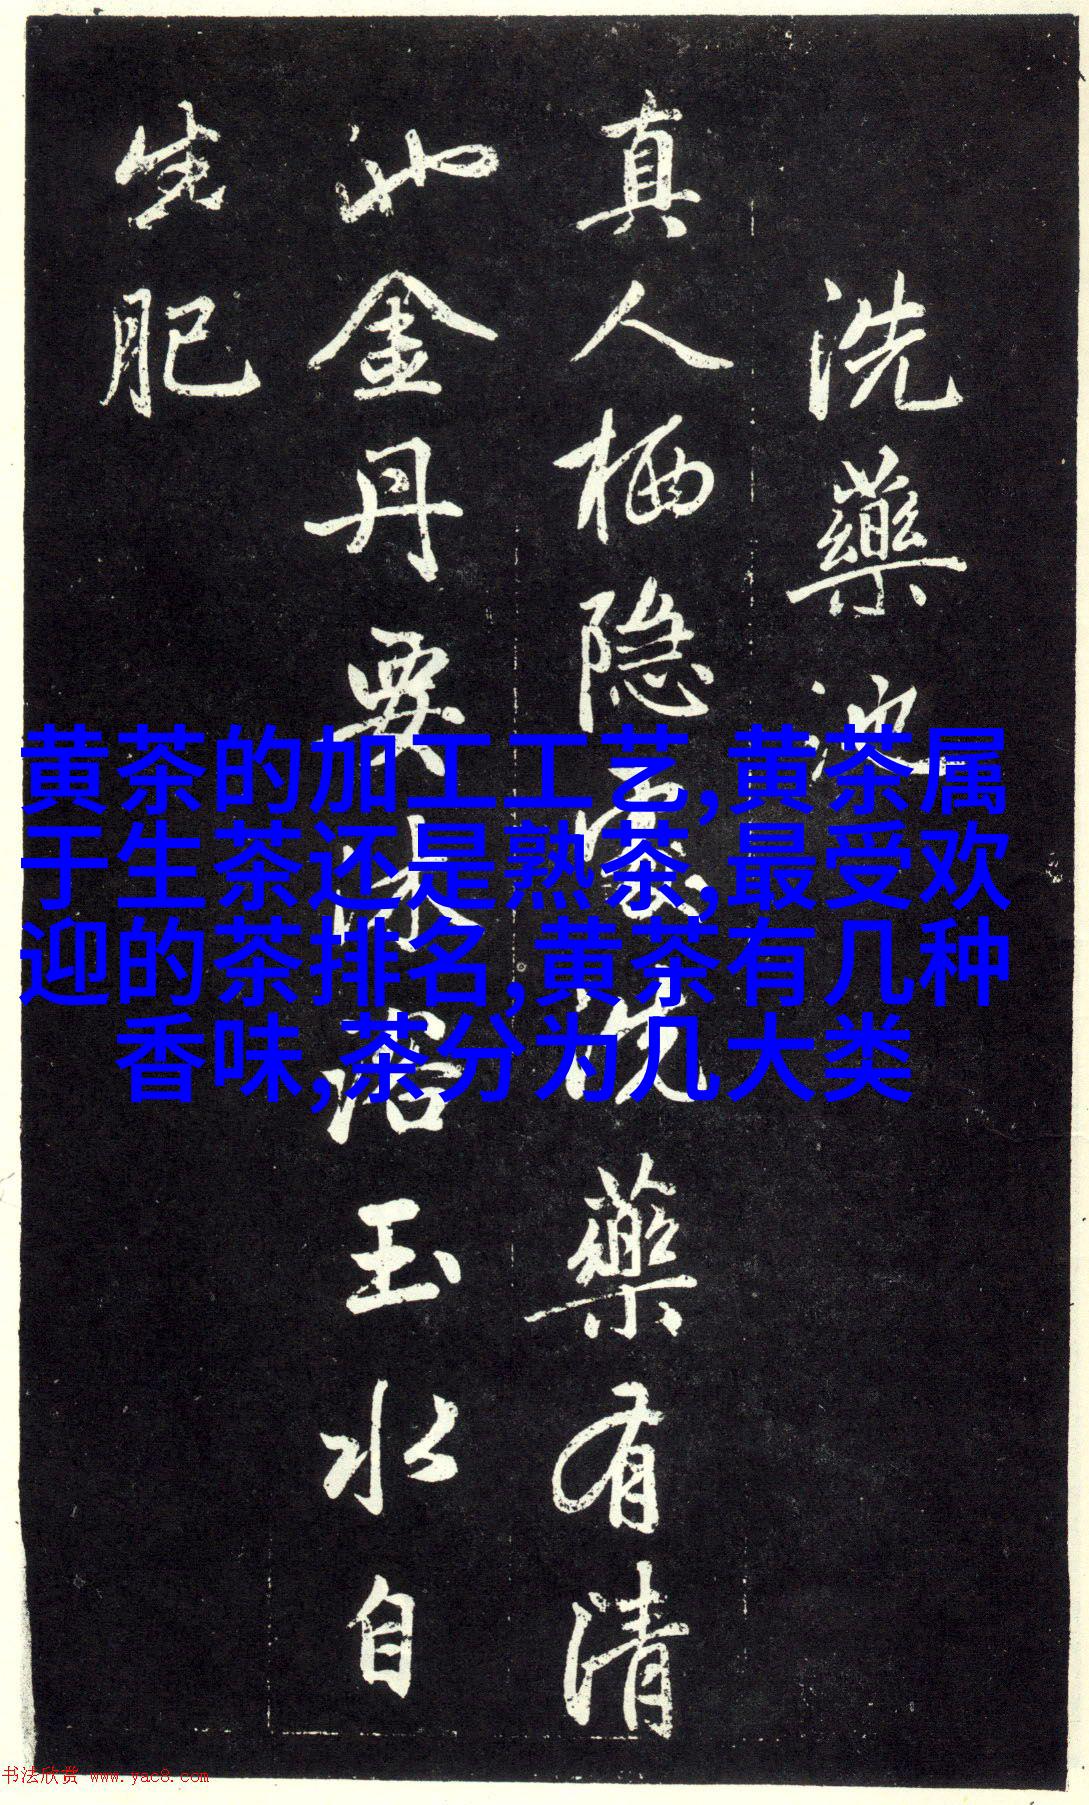 洗藥池
真人栖隐洗藥有清
池金丹要沐浴玉水自
生肥
黄茶的加工工艺,黄茶属
于生茶还是熟茶,最受欢
迎的茶排名,黄茶有几种
香味,茶分为几大类
书法欣赏 www.yac8.com